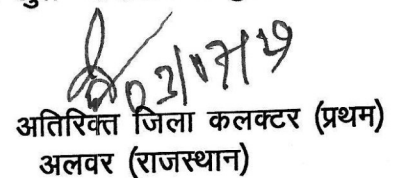 03/07/19
अतिरिक्त जिला कलक्टर (प्रथम)
अलवर (राजस्थान)